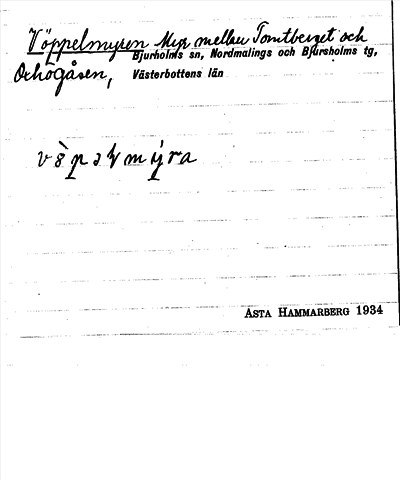 Vöppelmyren Myr mellan Tomtberget och
Bjurholms sn, Nordmalings och Bjursholms tg,
Orhögåsen, Västerbottens län
ASTA HAMMARBERG 1934